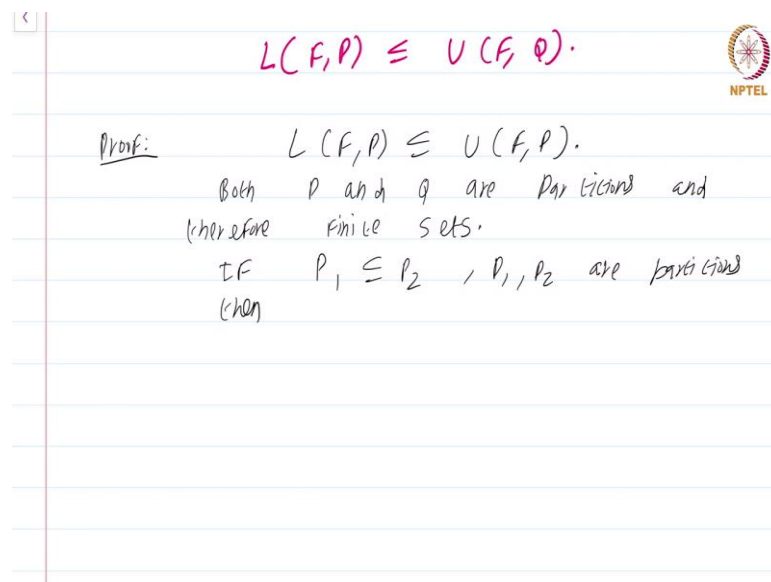 L(F,P) ≤ U(F,Q).
NPTEL
Proof: L(F,P) ≤ U(F,P).
Both P and Q are Partitions and
therefore finite sets.
If P₁ ⊆ P₂, P₁, P₂ are partitions
then